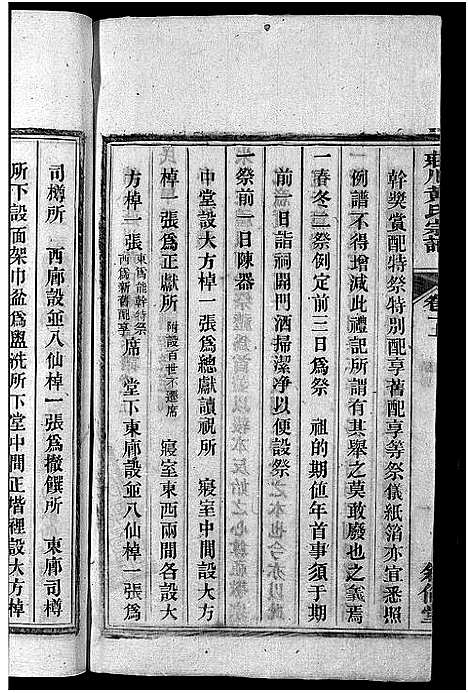 黄氏宗譜
卷
幹獎賞配特祭特別配享舊配享等祭儀紙箔亦宜悉照
一例譜不得增減此禮記所謂有其舉之莫敢廢也之義焉
一春冬二祭倒定前三日爲祭 祖的期値年首事須于期
前一日詣祠開門洒掃潔净以便設祭
一祭前一日陳器
中堂設大方棹一張爲總獻讀祝所 寢室中間設大方
棹一張爲正獻所 附設百世不遷席 寢室東西兩間各設大
方棹一張 東爲能幹特祭 西爲新舊配享 席 堂下東廊設並八仙棹一張爲
司樽所 西廊設並八仙棹一張爲撤饌所 東廊司樽
所下設面架巾盆爲盥洗所下堂中間正堦裡設大方棹